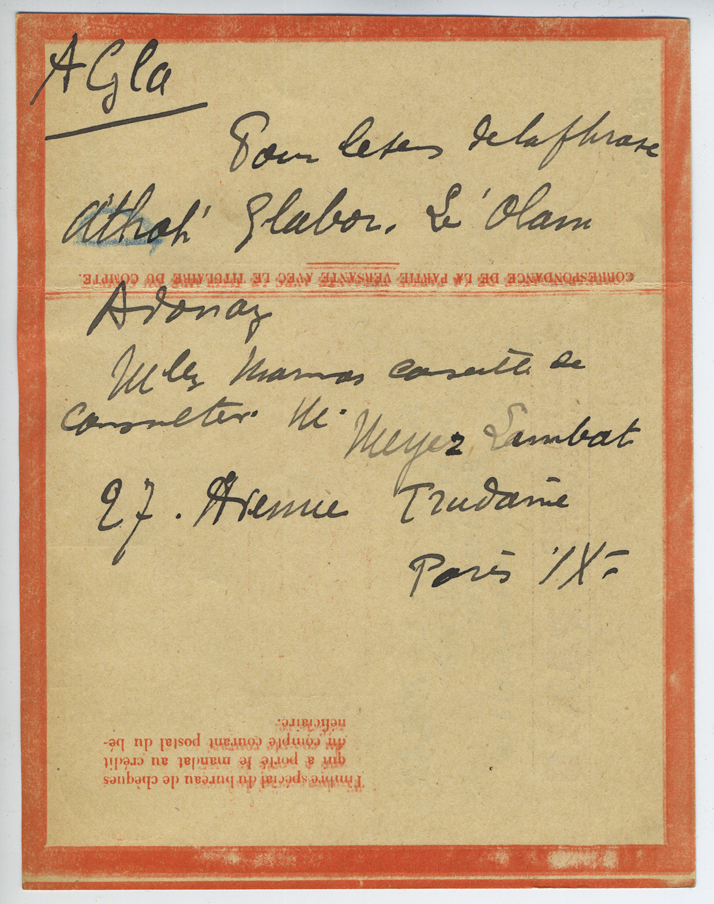 AGla
Pour le sens de la phrase
Athah' Glabor. Le' Olam
CORRESPONDANCE DE LA PARTIE VERSANTE AVEC LE TITULAIRE DU COMPTE.
Adonay
conseille de
consulter M.
Meyer Lambat
27. Avenue Trudaine
Paris IXe
Timbre spécial du bureau de chèques
qui a porté le mandat au crédit
du compte courant postal du bé-
néficiaire.